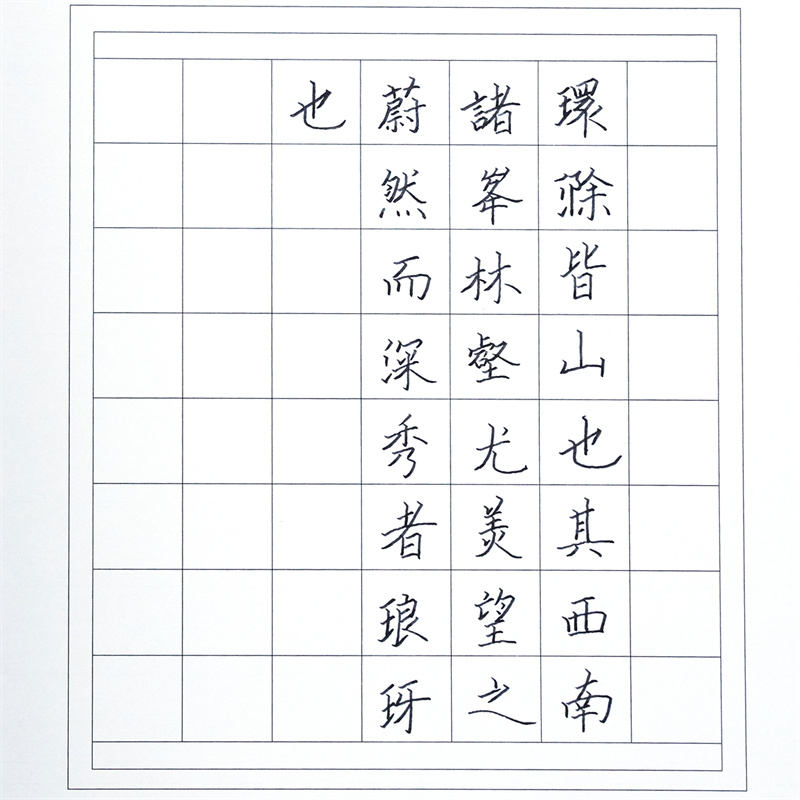 環滁皆山也其西南
諸峯林壑尤美望之
蔚然而深秀者琅玡
也